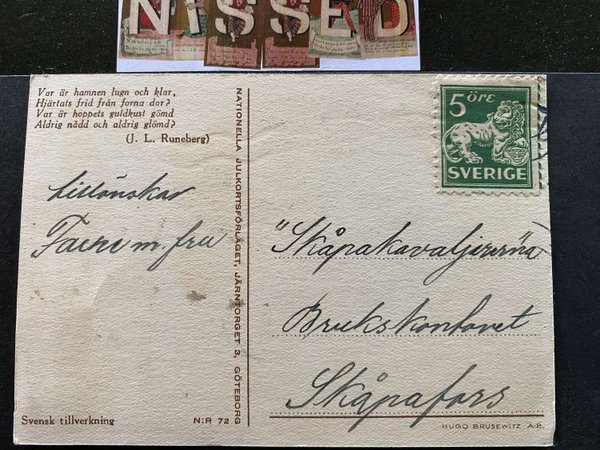 NISSED
Var är hamnen lugn och klar,
Hjärtats frid från forna dar?
Var är hoppets guldkust gömd
Aldrig nådd och aldrig glömd?
(J. L. Runeberg)
tillönskar
m. fru
NATIONELLA JULKORTSFÖRLAGET, JÄRNTORGET 3, GÖTEBORG
5 ÖRE
SVERIGE
"Skåpakavaljererna
Brukskontoret
Skåpafors
Svensk tillverkning
N:R 72
HUGO BRUSEWITZ A.B.